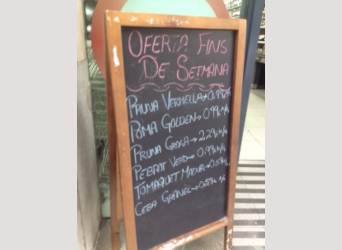 OFERTA FINS
DE SETMANA
PRUNA VERMELLA→0,99€/K
POMA GOLDEN→0,99€/K
PRUNA GROGA→2,29€/K
PEBROT VERD→0,99€/K
TOMAQUET MADUR→
CEBA GRANEL→